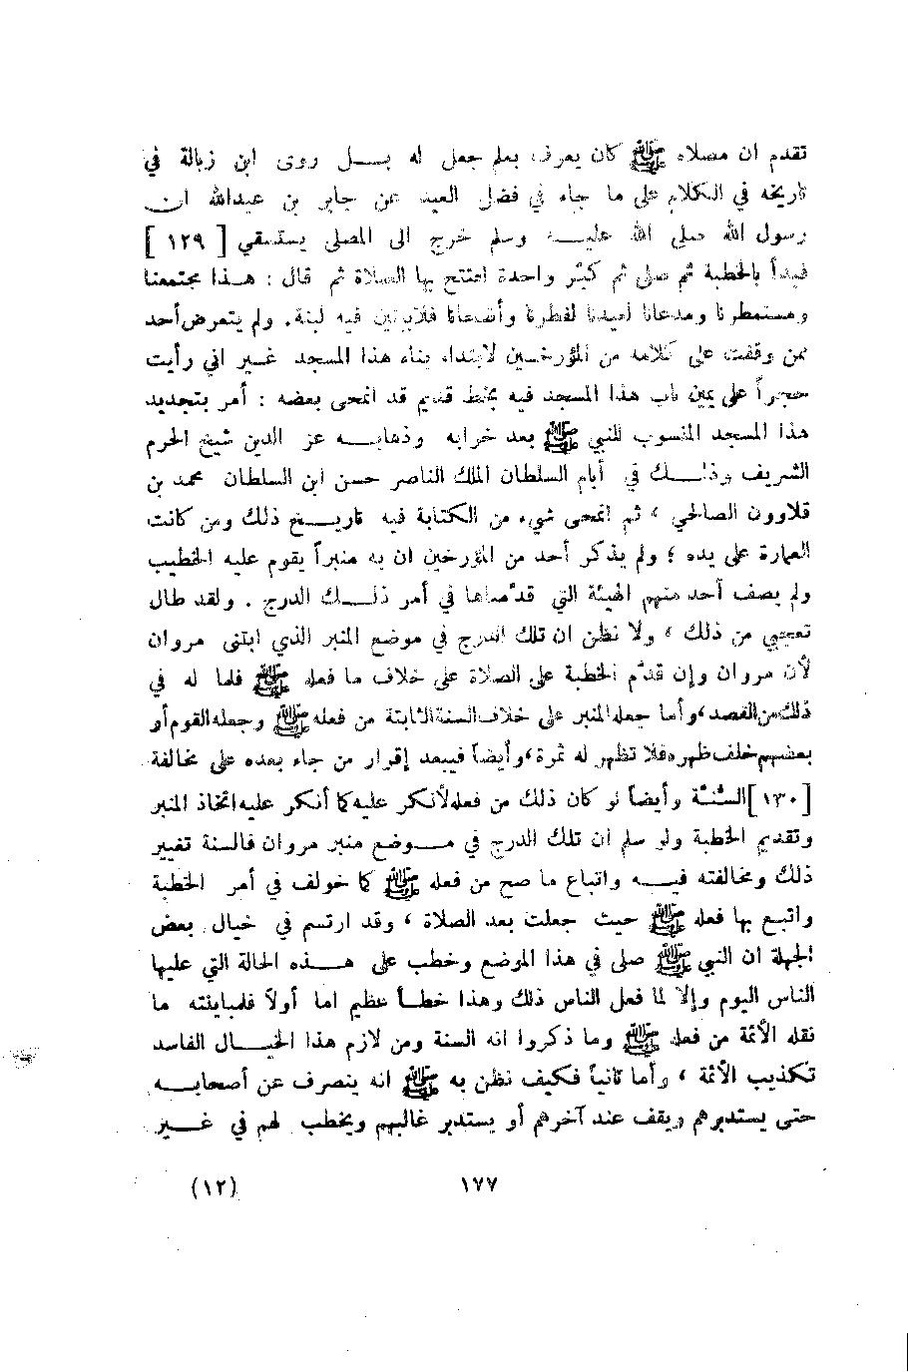 تقدم ان مصلاه ﷺ كان يعرف بعلم جعل له بـــل روى ابن زبالة في
تاريخه في الكلام على ما جاء في فضل العيد عن جابر بن عبدالله ان
رسول الله صلى الله عليـــه وسلم خرج الى المصلى يستسقي [ ١٢٩ ]
فبدأ بالخطبة ثم صلى ثم كبّر واحدة افتتح بها الصلاة ثم قال : هـذا مجتمعنا
ومستمطرنا ومدعانا لعيدنا لفطرنا وأضحانا فلا يبنين فيه لبنة. ولم يتعرض أحد
ممن وقفت على كلامه من المؤرخين لابتداء بناء هذا المسجد غـير اني رأيت
حجراً على يمين باب هذا المسجد فيه بخط قديم قد انمحى بعضه : أمر بتجديد
هذا المسجد المنسوب للنبي ﷺ بعد خرابه وذهابـــه عز الدين شيخ الحرم
الشريف وذلـــك في أيام السلطان الملك الناصر حسن ابن السلطان محمد بن
قلاوون الصالحي ، ثم انمحى شيء من الكتابة فيه تاريـــخ ذلك ومن كانت
العمارة على يده ؛ ولم يذكر أحد من المؤرخين ان به منبراً يقوم عليه الخطيب
ولم يصف أحد منهم الهيئة التي قدّمناها في أمر ذلـــك الدرج . ولقد طال
تعجبي من ذلك ، ولا نظن ان تلك الدرج في موضع المنبر الذي ابتنى مروان
لأن مروان وإن قدّم الخطبة على الصلاة على خلاف ما فعله ﷺ فلما له في
ذلك من القصد، وأما جعله المنبر على خلاف السنة الثابتة من فعله ﷺ وجعله القوم أو
بعضهم خلف ظهره فلا تظهر له ثمرة، وأيضاً فيبعد إقرار من جاء بعده على مخالفة
[١٣٠] السُّنّة وأيضاً لو كان ذلك من فعله لأنكر عليه كما أنكر عليه اتخاذ المنبر
وتقديم الخطبة ولو سلم ان تلك الدرج في مـــوضع منبر مروان فالسنة تغيير
ذلك ومخالفته فيـــه واتباع ما صح من فعله ﷺ كما خولف في أمر الخطبة
واتبع بها فعله ﷺ حيث جعلت بعد الصلاة ، وقد ارتسم في خيال بعض
الجهلة ان النبي ﷺ صلى في هذا الموضع وخطب على هـــذه الحالة التي عليها
الناس اليوم وإلا لما فعل الناس ذلك وهذا خطـأ عظيم اما أولاً فلمباينته ما
نقله الأئمة من فعله ﷺ وما ذكروا انه السنة ومن لازم هذا الخيـــال الفاسد
تكذيب الأئمة ، وأما ثانياً فكيف نظن به ﷺ انه ينصرف عن أصحابـــه
حتى يستدبرهم ويقف عند آخرهم أو يستدبر غالبهم ويخطب لهم في غـــير
١٧٧
(١٢)